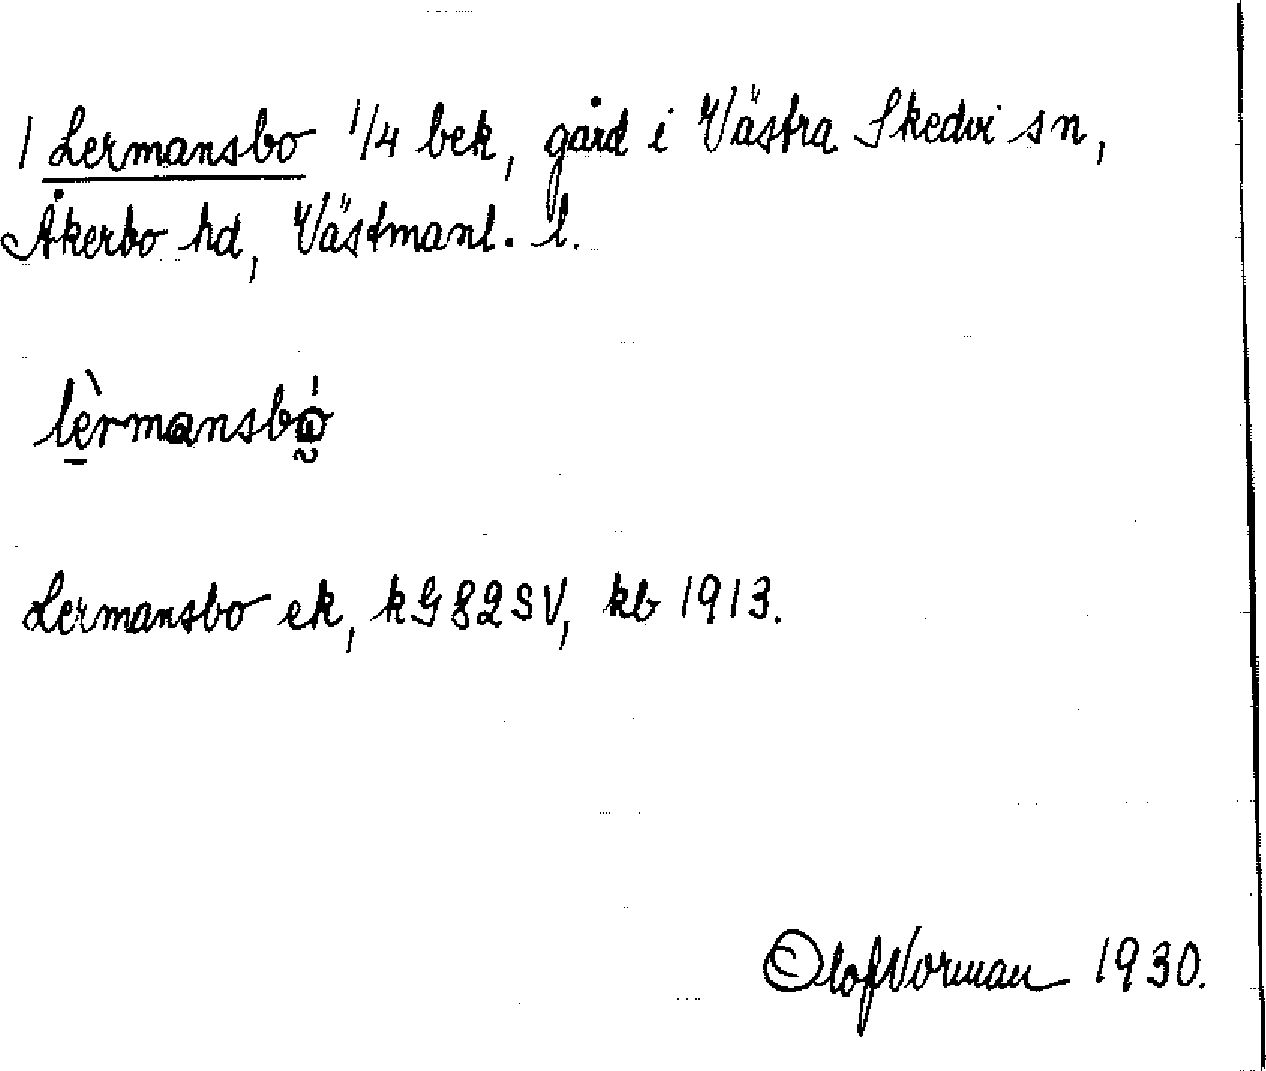 1 Lermansbo 1/4 bek, gård i Västra Skedvi sn,
Åkerbo hd, Västmanl. l.
lèrmansbó
Lermansbo ek, kG82SV, kb 1913.
Olof Norman 1930.